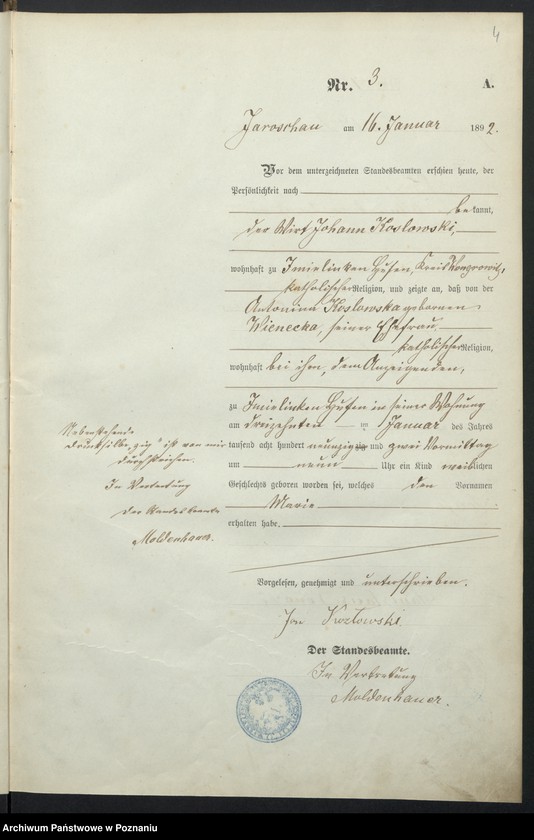 4
Nr. 3. A.
Jaroschau am 16. Januar 1892.
Vor dem unterzeichneten Standesbeamten erschien heute, der
Persönlichkeit nach
bekannt,
der Wirt Johann Koslowski,
wohnhaft zu Imielinken Hufen, Kreis Wongrowitz,
katholischer Religion, und zeigte an, daß von der
Antonina Koslowska geborenen
Wienecka, seiner Ehefrau,
katholischer Religion,
wohnhaft bei ihm, dem Anzeigenden,
zu Imielinken Hufen in seiner Wohnung
am dreizehnten Januar des Jahres
tausend acht hundert neunzig zig und zwei Vormittag
um neun Uhr ein Kind weiblichen
Geschlechts geboren worden sei, welches den Vornamen
Marie
erhalten habe.
Nebenstehende
Drucksilbe „zig" ist von mir
durchstrichen.
In Vertretung
der Standesbeamte
Moldenhauer.
Vorgelesen, genehmigt und unterschrieben.
Jan Kozłowski
Der Standesbeamte.
In Vertretung
Moldenhauer.
Archiwum Państwowe w Poznaniu